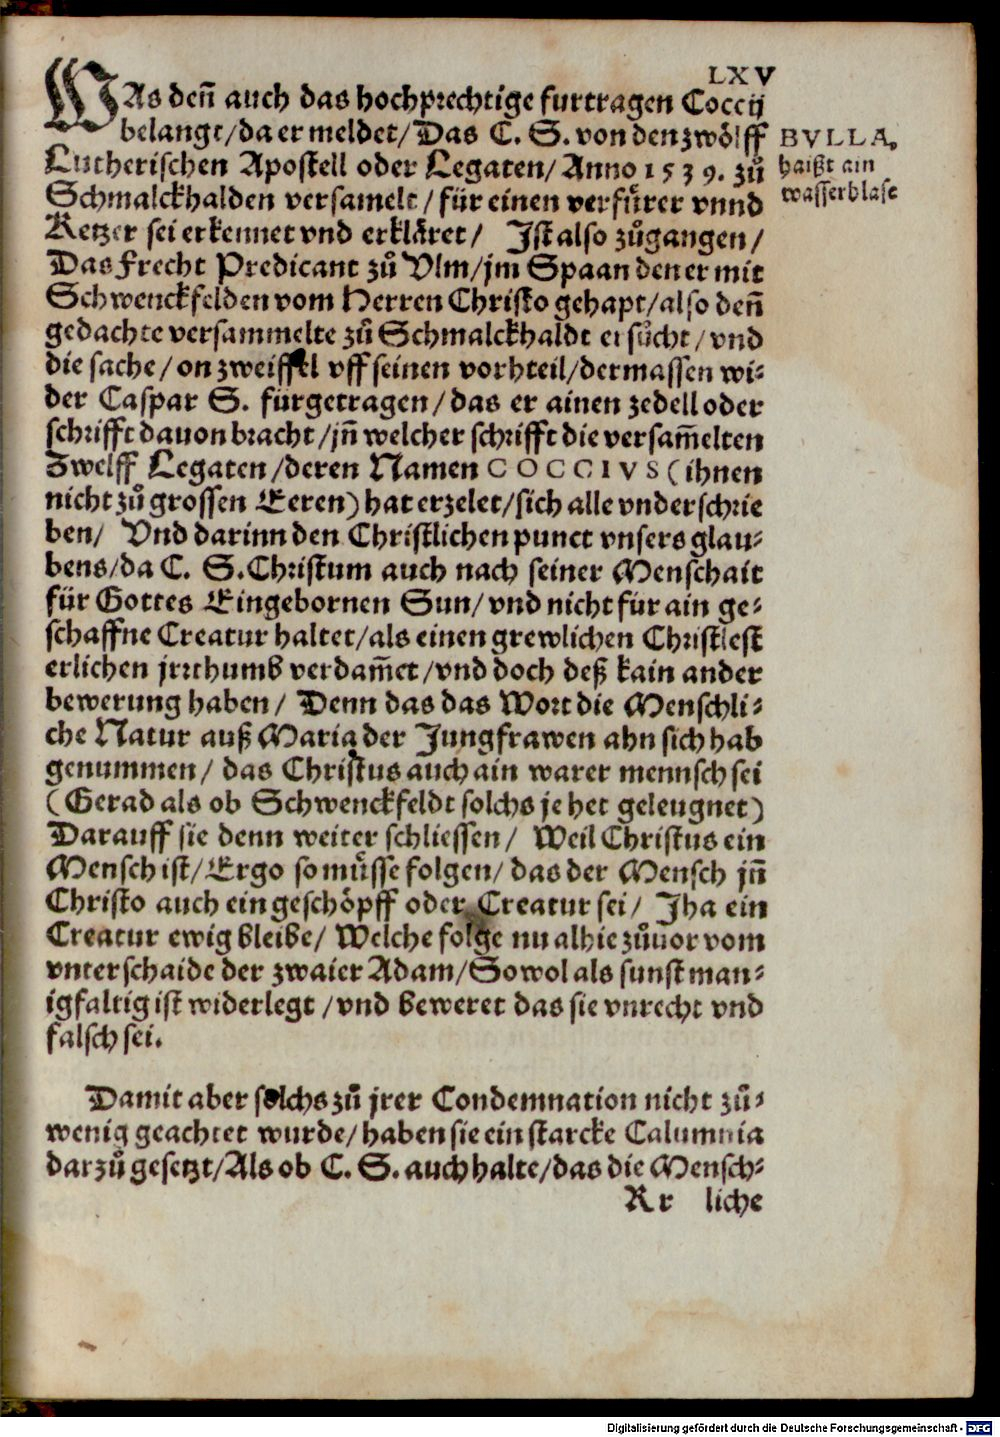 LXV
WAs deñ auch das hochprechtige furtragen Coccij
belangt/da er meldet/Das C. S. von den zwölff
Lutherischen Apostell oder Legaten/Anno 1539. zů
Schmalckhalden versamelt/für einen verfürer vnnd
Ketzer sei erkennet vnd erkläret/ Ist also zůgangen/
Das Frecht Predicant zů Vlm/jm Spaan den er mit
Schwenckfelden vom Herren Christo gehapt/also deñ
gedachte versammelte zů Schmalckhaldt ersůcht/vnd
die sache/on zweiffel vff seinen vorhteil/dermassen wi-
der Caspar S. fürgetragen/das er ainen zedell oder
schrifft dauon bracht/jñ welcher schrifft die versam̃elten
Zwelff Legaten/deren Namen COCCIVS (ihnen
nicht zů grossen Eeren) hat erzelet/sich alle vnderschrie
ben/ Vnd darinn den Christlichen punct vnsers glau-
bens/da C. S. Christum auch nach seiner Menschait
für Gottes Eingebornen Sun/vnd nicht für ain ge-
schaffne Creatur haltet/als einen grewlichen Christlest
erlichen jrrthumb verdam̃et/vnd doch deß kain ander
bewerung haben/ Denn das das Wort die Menschli-
che Natur auß Maria der Jungfrawen ahn sich hab
genummen/ das Christus auch ain warer mennsch sei
(Gerad als ob Schwenckfeldt solchs je het geleugnet)
Darauff sie denn weiter schliessen/ Weil Christus ein
Mensch ist/Ergo so müsse folgen/das der Mensch jñ
Christo auch ein geschöpff oder Creatur sei/ Jha ein
Creatur ewig bleibe/ Welche folge nu alhie zůuor vom
vnterschaide der zwaier Adam/So wol als sunst man-
igfaltig ist widerlegt/vnd beweret das sie vnrecht vnd
falsch sei.
Damit aber solchs zů jrer Condemnation nicht zů-
wenig geachtet wurde/haben sie ein starcke Calumnia
darzů gesetzt/Als ob C. S. auch halte/das die Mensch-
Rr liche
BVLLA,
haißt ain
wasserblase
Digitalisierung gefördert durch die Deutsche Forschungsgemeinschaft - DFG